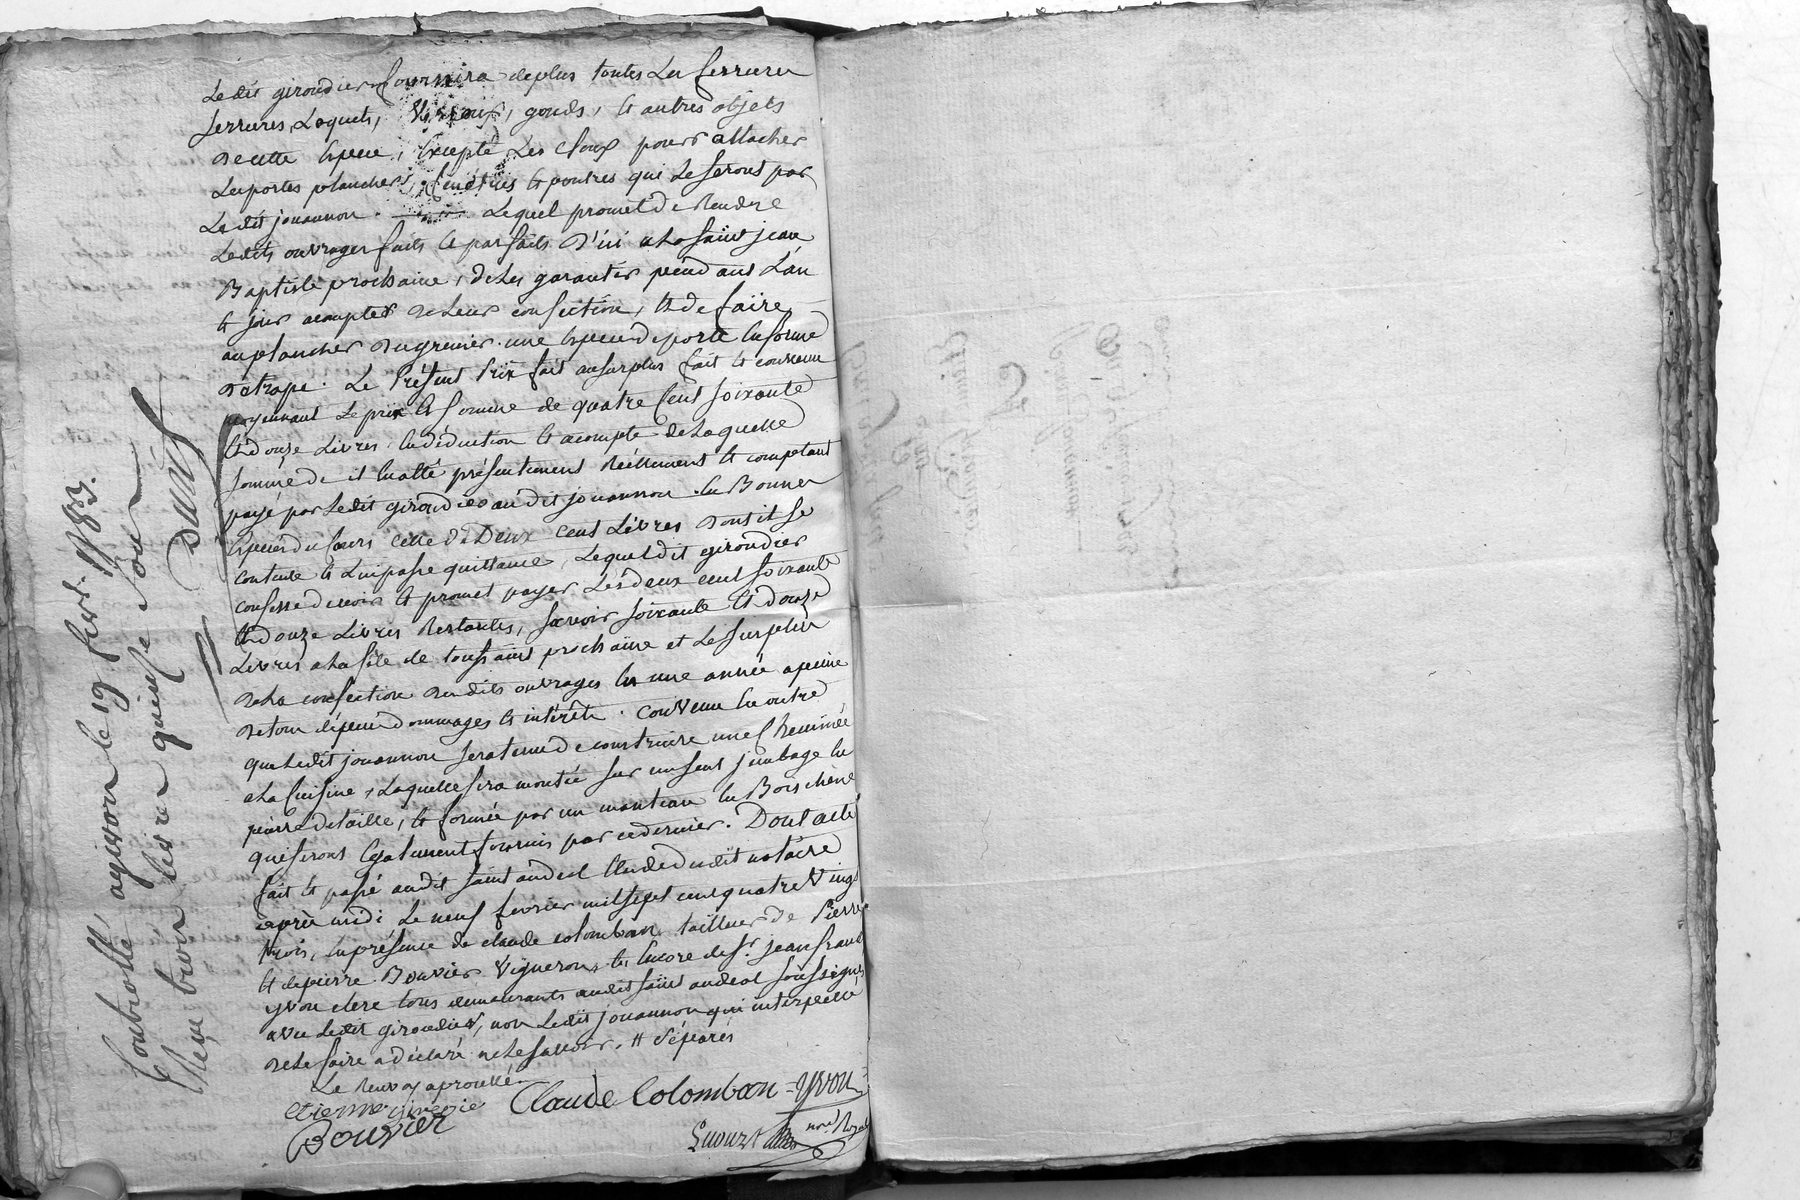 Ledit girondier fournira deplus toutes Les ferrures
serrures, Loquets, Verroux, gonds, et autres objets
decette Espece, Excepté Les cloux pour attacher
Lesportes planchers, fenêtres et poutres qui Le seront par
Ledit jouannon. Lequel promet de Rendre
Lesdits ouvrages faits et parfaits d'ici alasaint jean
Baptiste prochaine, deLes garantir pendant L'an
et jour acompter deLeur confection, et de faire
auplancher dugrenier une Espece de porte Enforme
detrape. Le Présent Prix fait ausurplus fait et convenu
moyennant Le prix et somme de quatre Cent soixante
et douze Livres Endéduction et acompte deLaquelle
somme de il En a été présentement Réellement et comptant
payé par Ledit girondier audit jouannon En Bonnes
Especes du Cours celle de Deux Cent Livres dont il se
contente et L'enpasse quittance, Lequel dit girondier
confesse devoir et promet payer Les deux cent soixante
et douze Livres Restantes, savoir soixante et douze
Livres alafête de toussaint prochaine et Le surplus
dela confection desdits ouvrages En une année apeine
detous dépens dommages et intérêts. Convenu En outre
que Ledit jouannon sera tenu de construire une Cheminée
ala Cuisine, Laquelle sera montée sur un seul jambage En
pierre detaille, et formée par un manteau En Bois chêne
qui seront Egalement fournis par cedernier. Dont acte
fait et passé audit saint andeol Etude dudit notaire
après midi Le neuf fevrier mil sept cent quatre Vingt
trois, En présence de claude colomban tailleur de Pierre
et depierre Bouvier Vigneron, et Encore de Sr. jean francois
yvon clerc tous demeurants audit saint andeol soussignés
avec Ledit girondier, non Ledit jouannon qui interpellé
deLe faire a déclaré ne Le savoir. # séparés
Le Renvoy aprouvé
Claude Colomban = yvon =
Bouvier
nore. Royal
Controllé a givors le 19 fevr. 1783.
Reçu trois livres quinze sous